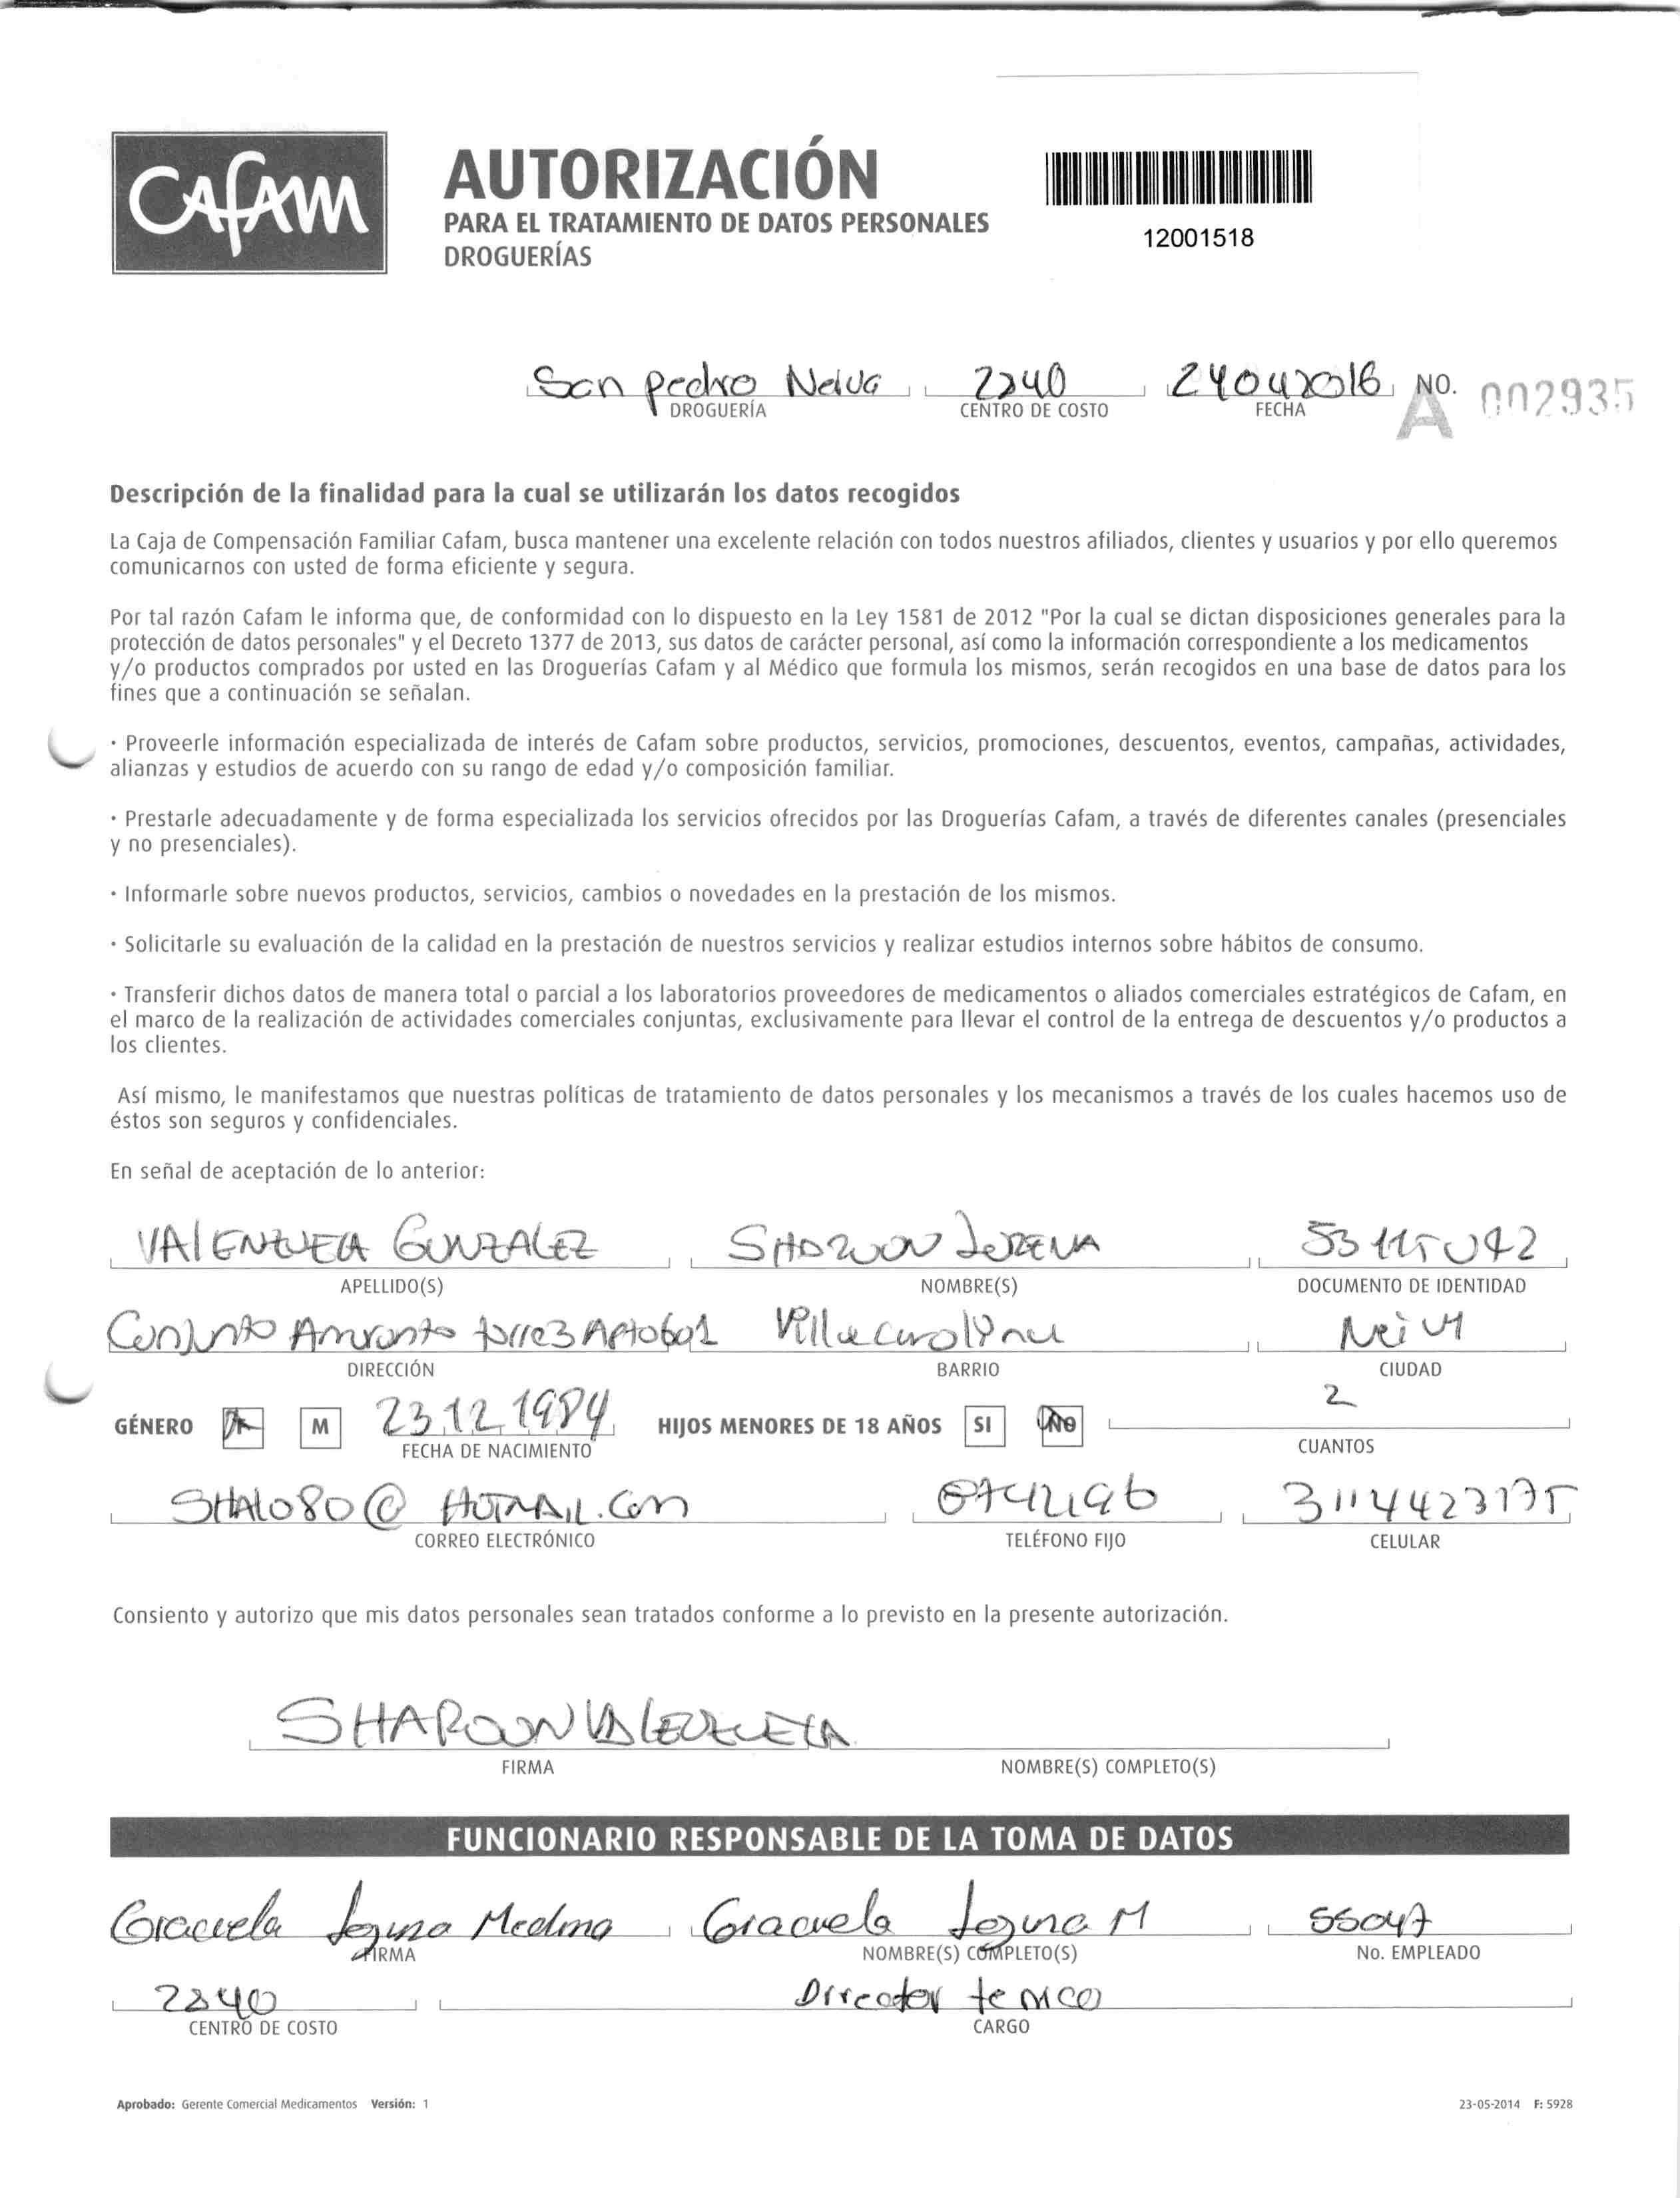 CAFAM
AUTORIZACIÓN
PARA EL TRATAMIENTO DE DATOS PERSONALES
DROGUERÍAS
12001518
San pedro Neiva 2240 24042016 NO. A 002935
DROGUERÍA CENTRO DE COSTO FECHA
Descripción de la finalidad para la cual se utilizarán los datos recogidos
La Caja de Compensación Familiar Cafam, busca mantener una excelente relación con todos nuestros afiliados, clientes y usuarios y por ello queremos
comunicarnos con usted de forma eficiente y segura.
Por tal razón Cafam le informa que, de conformidad con lo dispuesto en la Ley 1581 de 2012 "Por la cual se dictan disposiciones generales para la
protección de datos personales" y el Decreto 1377 de 2013, sus datos de carácter personal, así como la información correspondiente a los medicamentos
y/o productos comprados por usted en las Droguerías Cafam y al Médico que formula los mismos, serán recogidos en una base de datos para los
fines que a continuación se señalan.
· Proveerle información especializada de interés de Cafam sobre productos, servicios, promociones, descuentos, eventos, campañas, actividades,
alianzas y estudios de acuerdo con su rango de edad y/o composición familiar.
· Prestarle adecuadamente y de forma especializada los servicios ofrecidos por las Droguerías Cafam, a través de diferentes canales (presenciales
y no presenciales).
· Informarle sobre nuevos productos, servicios, cambios o novedades en la prestación de los mismos.
· Solicitarle su evaluación de la calidad en la prestación de nuestros servicios y realizar estudios internos sobre hábitos de consumo.
· Transferir dichos datos de manera total o parcial a los laboratorios proveedores de medicamentos o aliados comerciales estratégicos de Cafam, en
el marco de la realización de actividades comerciales conjuntas, exclusivamente para llevar el control de la entrega de descuentos y/o productos a
los clientes.
Así mismo, le manifestamos que nuestras políticas de tratamiento de datos personales y los mecanismos a través de los cuales hacemos uso de
éstos son seguros y confidenciales.
En señal de aceptación de lo anterior:
VALENZUELA GONZALEZ SHAROON LORENA 53115042
APELLIDO(S) NOMBRE(S) DOCUMENTO DE IDENTIDAD
Conjunto Amaranto torre3 Apto601 Villa Carolyna Neiva
DIRECCIÓN BARRIO CIUDAD
GÉNERO M 23 12 1984 HIJOS MENORES DE 18 AÑOS SI NO 2
FECHA DE NACIMIENTO CUANTOS
SHALO80@HOTMAIL.Com 3114423175
CORREO ELECTRÓNICO TELÉFONO FIJO CELULAR
Consiento y autorizo que mis datos personales sean tratados conforme a lo previsto en la presente autorización.
SHAROON VALENZUELA
FIRMA NOMBRE(S) COMPLETO(S)
FUNCIONARIO RESPONSABLE DE LA TOMA DE DATOS
Graciela Medina Graciela M 55047
FIRMA NOMBRE(S) COMPLETO(S) No. EMPLEADO
2240 Director tenico
CENTRO DE COSTO CARGO
Aprobado: Gerente Comercial Medicamentos Versión: 1 23-05-2014 F: 5928